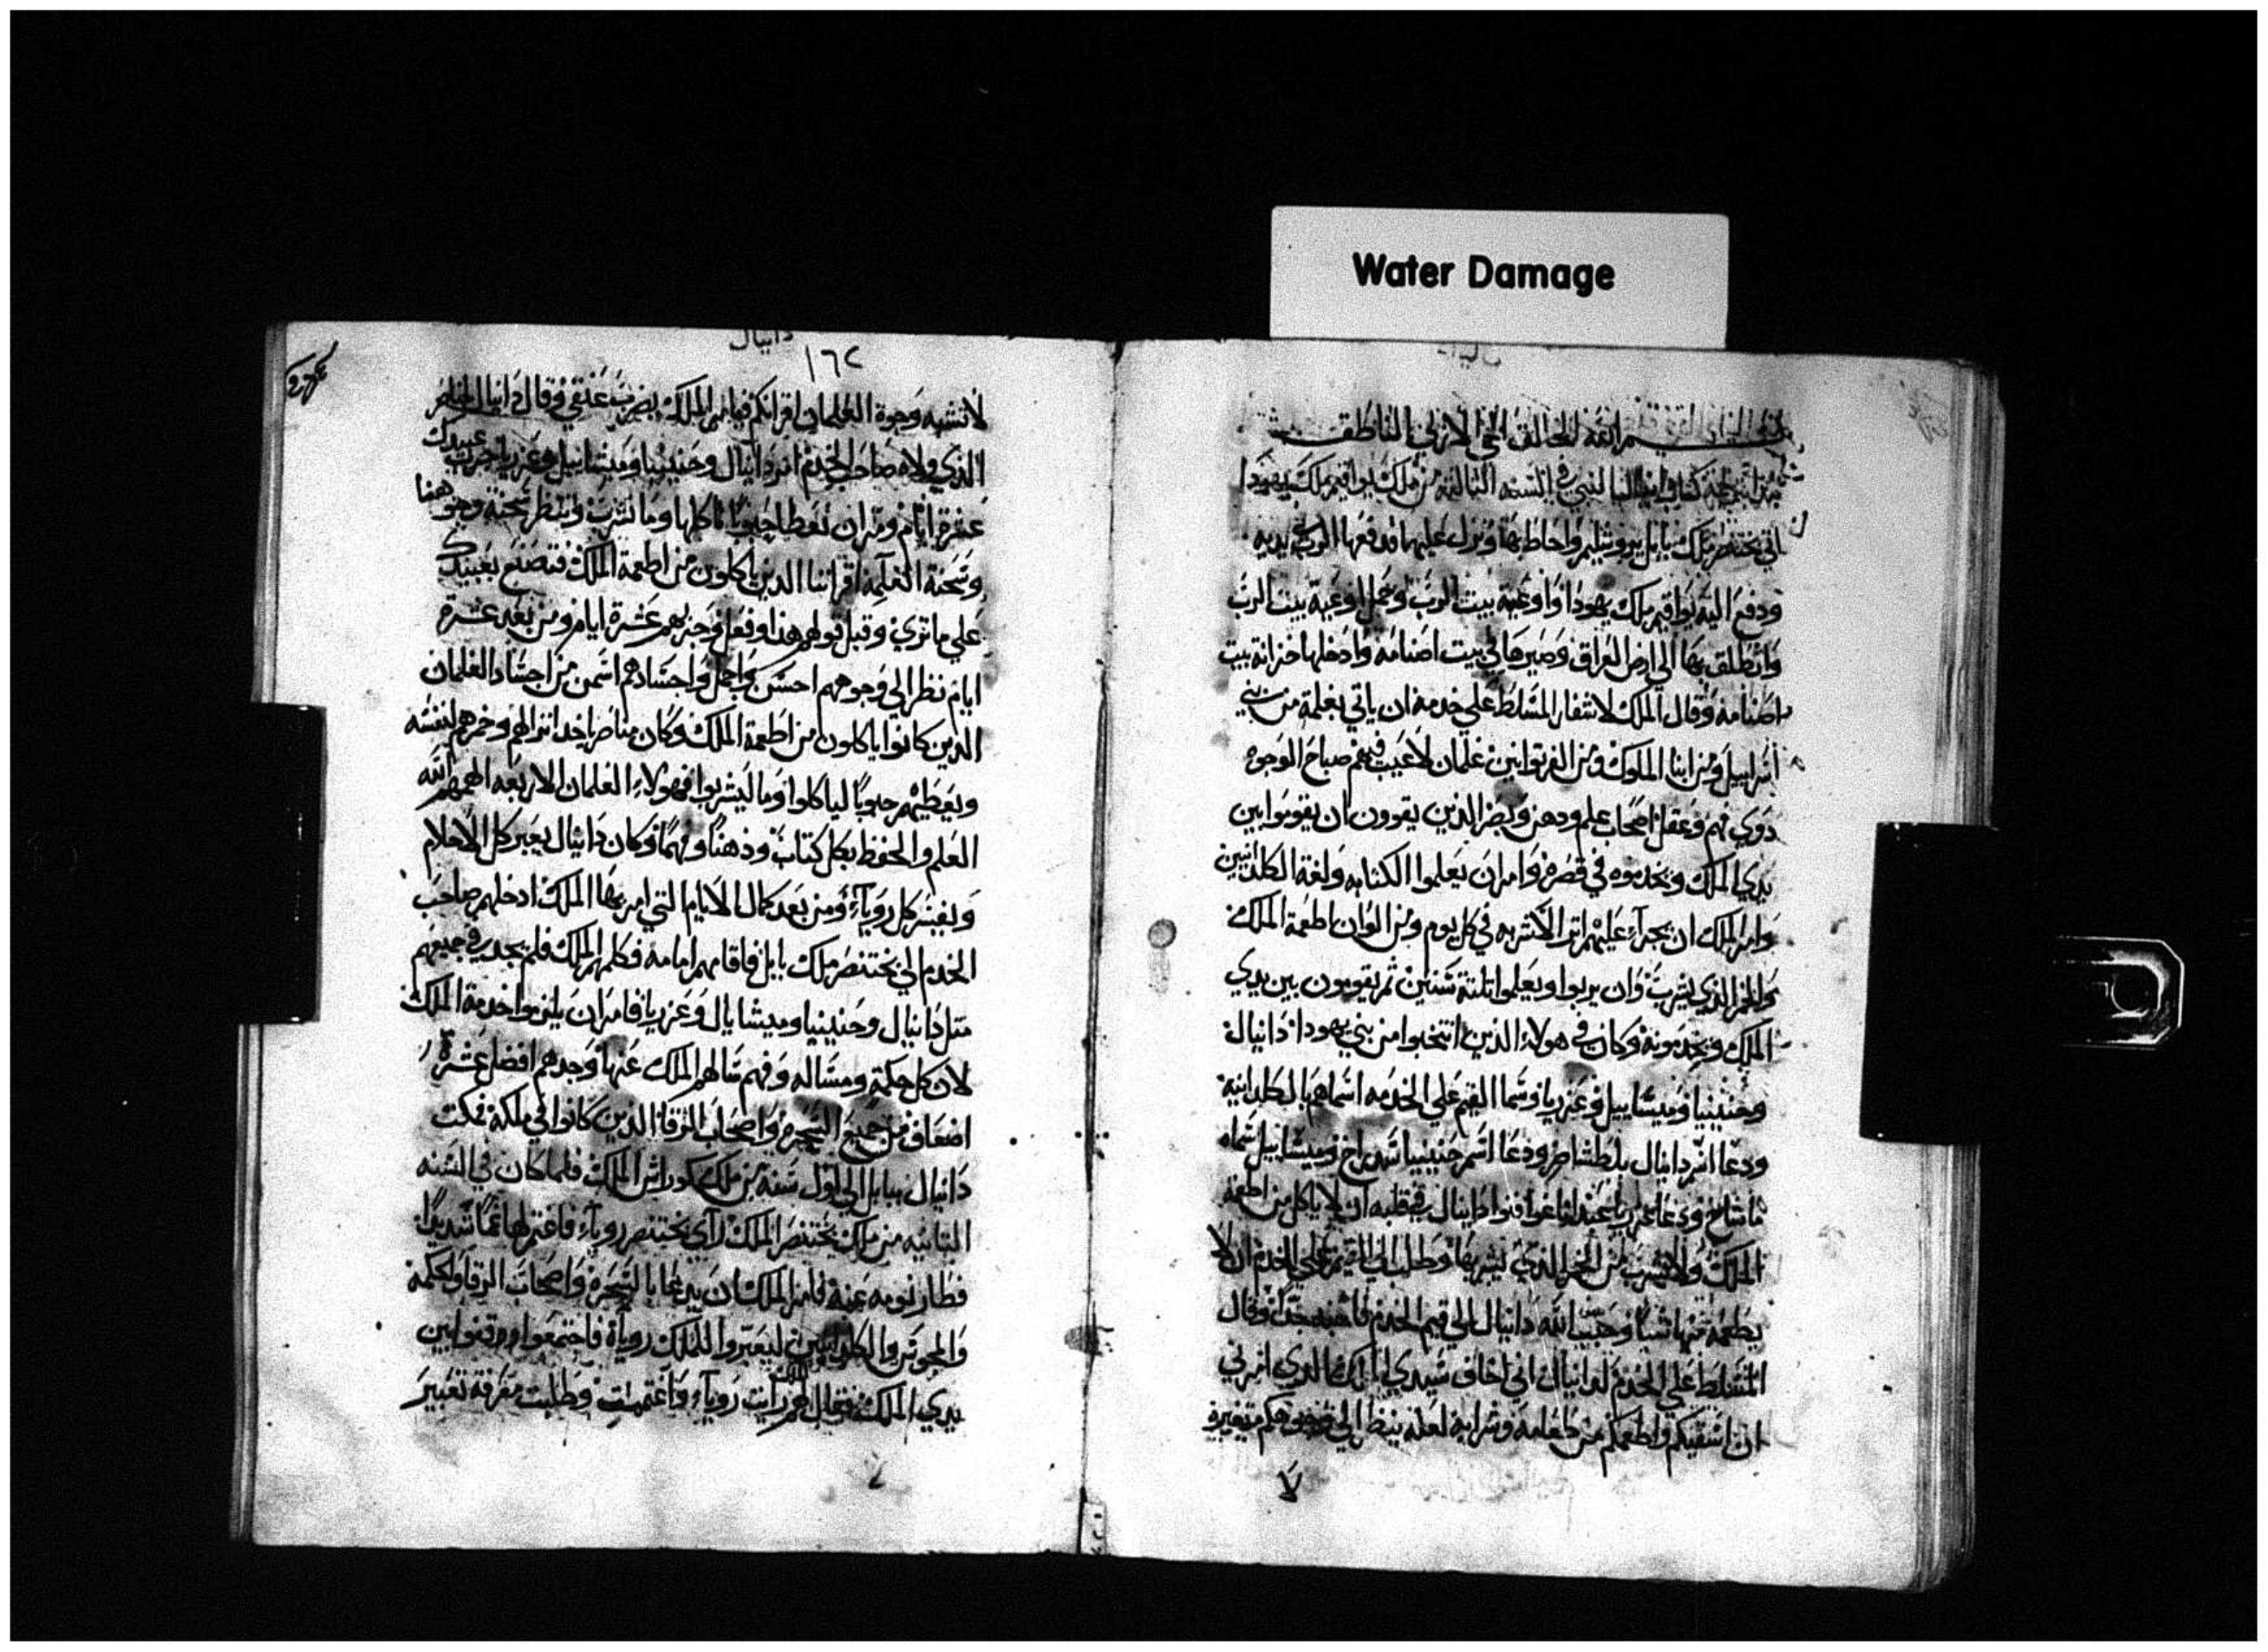 Water Damage
بسم الله الخالق الحي الازلي الناطق
كتاب دانيال النبي في السنه الثالثة من ملك يواقيم ملك يهودا
اتي بختنصر ملك بابل يروشليم واحاط بها ونزل عليها فدفعها الرب بيديه
ودفع اليه يواقيم ملك يهودا واوعية بيت الرب وحمل اوعية بيت الرب
وانطلق بها الي ارض العراق وصيرها في بيت اصنامه وادخلها خزانة بيت
اصنامه وقال الملك لاشفار المسلط علي خدمه ان ياتي بغلمة من بني
اسراييل ومن ابنا الملوك ومن الفرتوانين غلمان لا عيب فيهم صباح الوجوه
دوي فهم وعقل اصحاب علم ودهن وبصر الذين يقوون ان يقوموا بين
يدي الملك ويخدموه في قصره وامر ان يعلموا الكتابه ولغة الكلدانيين
وامر الملك ان يجرآ عليهم الاشربه في كل يوم ومن الوان اطعمة الملك
والخمر الذي يشرب وان يربوا ويعلموا ثلثة سنين ثم يقومون بين يدي
الملك ويخدمونه وكان في هولاء الذين انتخبوا من بني يهودا دانيال
وحنينيا وميشاييل وعزريا وسما القيم علي الخدمه اسماهم بالكلدانية
ودعا اسم دانيال بلطشاصر ودعا اسم حنينيا شدراخ وميشاييل سماه
ماشاخ ودعا عزريا عبدناغوا فنوا دانيال في قلبه ان لا ياكل من اطعمة
الملك ولا يشرب من الخمر الذي يشربها وطلب الي القيم علي الخدم ان لا
يطعمه منها شيا وحبب الله دانيال الي قيم الخدم فاحبه جدا وقال
المسلط علي الخدم لدانيال اني اخاف سيدي الملك الذي امرني
ان اسقيكم واطعمكم من طعامه وشرابه لعله ينظر الي وجوهكم متغيرة
لا
دانيال
١٦٢
لا تشبه وجوة الغلمان اقرانكم فيامر الملك بضرب عنقي وقال دانيال
الذي ولاه صاحب الخدم امر دانيال وحنينيا وميشاييل وعزريا جرب عبيدك
عشرة ايام ومر ان نعطا حبوبا ناكلها وما نشرب وتنظر سحنة وجوهنا
وسحنة الغلمه اقراننا الذين ياكلون من اطعمة الملك فتصنع بعبيدك
علي ما تري وقبل قولهم هذا وفعل وجربهم عشرة ايام ومن بعد عشرة
ايام نظر الي وجوههم احسن واجمل واجسادهم اسمن من اجساد الغلمان
الذين كانوا ياكلون من اطعمة الملك وكان مناصر ياخد انزالهم وخمرهم لنفسه
ويعطيهم حبوبا لياكلوا وما ليشربوا فهولاء الغلمان الاربعه الهمهم الله
العلم والحفظ بكل كتاب وذهنا وفهما وكان دانيال يعبر كل الاحلام
ويفسر كل روياء ومن بعد كمال الايام التي امر بها الملك ادخلهم صاحب
الخدم الي بختنصر ملك بابل فاقامهم امامه فكلمهم الملك فلم يجد في جميعهم
متل دانيال وحنينيا وميشايال وعزريا فامر ان يلزموا خدمة الملك
لان كل حكمة ومساله وفهم سالهم الملك عنها وجدهم افضل عشرة
اضعاف من جميع السحرة واصحاب الرقا الدين كانوا في ملكه فمكت
دانيال ببابل الي اول سنة من ملك كوراش الملك فلما كان في السنه
التانيه من ملك بختنصر الملك رآي بختنصر روياء فاغتم لها غما شديدا
فطار نومه عنه فامر الملك ان يدعا بالسحرة واصحاب الرقا والحكمه
والمجوس والكلدانيين ليعبروا للملك روياه فاجتمعوا ووقفوا بين
يدي الملك فقال لهم الملك رايت روياء واغتممت وطلبت معرفة تعبير